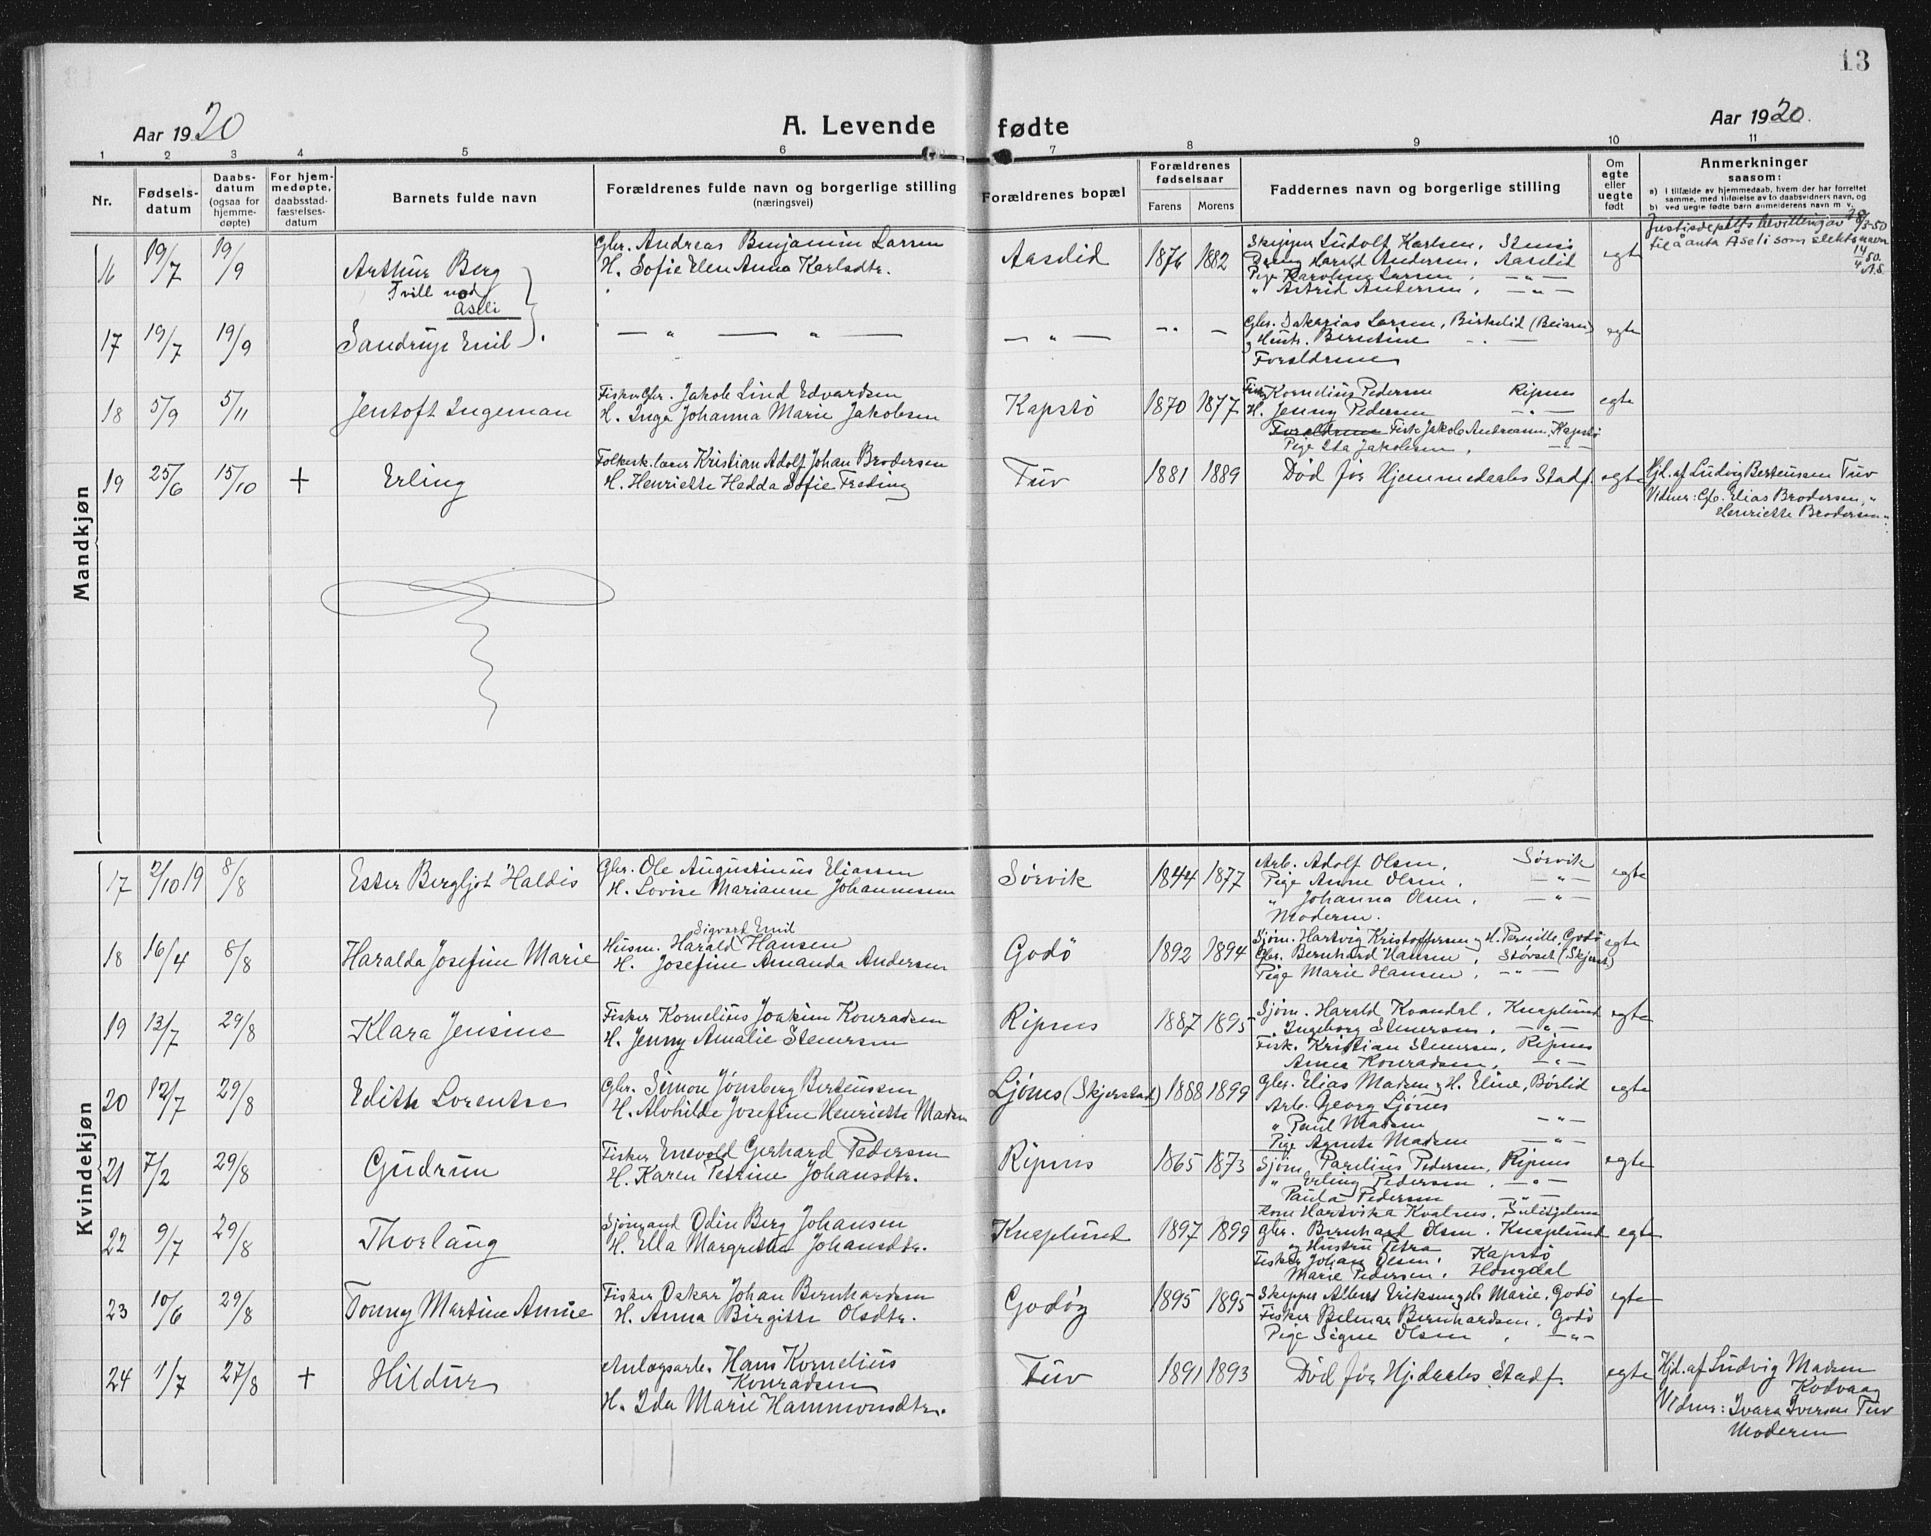 13
Aar 1920
A. Levende fødte
Aar 1920.
1 2 3 4 5 6 7 8 9 10 11
Nr.
Fødsels-
datum
Daabs-
datum
(ogsaa for
hjemme-
døpte)
For hjem-
medøpte,
daabsstad-
fæstelses-
datum
Barnets fulde navn
Forældrenes fulde navn og borgerlige stilling
(næringsvei)
Forældrenes bopæl
Forældrenes
fødselsaar
Farens Morens
Faddernes navn og borgerlige stilling
Om
egte
eller
uegte
født
Anmerkninger
saasom:
a) I tilfælde av hjemmedaab, hvem der har forrettet
samme, med tilføielse av to daabsvidners navn, og
b) ved uegte fødte barn anmelderens navn m. v.
Mandkjøn
16 19/7 19/9 Arthur Berg
Tvill
Aseli
Gbr. Andreas Benjamin Larsen
H. Sofie Elen Anna Karlsdtr.
Aaselid 1876 1882
Skipper Ludolf Karlsen,
Harald Andersen, Aaselid
Pige Karoline Larsen, — " —
" Astrid Andersen, — " —
egte
Justisdeptets bevilling av 28/3-50
til å anta Åseli som slektsnavn
14/4 50.
A.S.
17 19/7 19/9 Sandrup Emil
— " — " —
— " —
— " —
Gbr. Sakarias Larsen, Birkelid (Beiarn)
og Hustr. Berntine — " —
Forældrene
egte
18 5/9 5/11 Jentoft Ingeman
Fisker Gbr. Jakob Lind Edvardsen
H. Inga Johanna Marie Jakobsen
Kapstø 1870 1877
Fisker Kornelius Pedersen Ripnes
H. Jenny Pedersen — " —
Forældrene Fisk. Jakob Andreassen, Kapstø
Pige Ida Jakobsen, — " —
egte
19 25/6 15/10 + Erling
Folkesk.lærer Kristian Adolf Johan Brodersen
H. Henriette Hedda Sofie Freding
Tuv 1881 1889
Død før Hjemmedaabs Stadf.
egte
Hjd. af Ludvig Bertensen Tuv
Vidner: Gb. Elias Brodersen, "
Henriette Brodersen "
Kvindekjøn
17 2/10 19 8/8 Ester Bergljot Haldis
Gbr. Ole Augustinus Eliassen
H. Lovise Marianne Johannesen
Sørvik 1844 1877
Arb. Adolf Olsen, Sørvik
Pige Anne Olsen, — " —
" Johanna Olsen, — " —
Moderen.
egte
18 16/4 8/8 Haralda Josefine Marie
Sigvart Emil
Husm. Harald Hansen
H. Josefine Amanda Andersen
Godø 1892 1894
Sjøm. Hartvig Kristoffersen og H. Pernille, Godø
Gbr. Bernhard Hansen, Støvset (Skjerst.)
Pige Marie Hansen, — " —
egte
19 13/7 29/8 Klara Jensine
Fisker Kornelius Joakim Konradsen
H. Jenny Amalie Stenersen
Ripnes 1887 1895
Sjøm. Harald Kvandal, Knaplund
Ingeborg Stenersen, — " —
Fisk. Kristian Stenersen, Ripnes
Anna Konradsen, — " —
egte
20 12/7 29/8 Edith Lorentse
Gbr. Simon Jønsberg Bertensen
H. Alvhilde Josefine Henriette Madsen
Ljønes (Skjerstad) 1888 1899
Gbr. Elias Madsen og H. Eline, Børlid
Arb. Georg Ljønes
" Paul Madsen — " —
Pige Agnete Madsen — " —
egte
21 7/2 29/8 Gudrun
Fisker Enevold Gerhard Pedersen
H. Karen Petrine Johansdtr.
Ripnes 1865 1873
Sjøm. Parelius Pedersen, Ripnes
" Erling Pedersen, — " —
Paula Pedersen — " —
Kone Hartvika Kvalnes, Sulitjelma
egte
22 9/7 29/8 Thorlaug
Sjømand Odin Berg Johansen
H. Ella Margrethe Johansdtr.
Knaplund 1897 1899
Gbr. Bernhard Olsen, Knaplund
og Hustru Petra
Fisker Johan Olsen, Kapstø
Marie Pedersen, Hongdal
egte
23 10/6 29/8 Tonny Martine Annie
Fisker Oskar Johan Bernhardsen
H. Anna Birgitte Olsdtr.
Godøy 1895 1895
Skipper Albert Eriksen og H. Marie, Godø
Fisker Belmar Bernhardsen, Godö
Pige Signe Olsen, — " —
egte
24 1/7 27/8 + Hildur
Anlægsarb. Hans Kornelius
Konradsen
H. Ida Marie Hammonsdtr.
Tuv 1891 1893
Død før Hj.daabs Stadf.
egte
Hjd. af Ludvig Madsen
Kodvaag
Vidner: Ivara Iversen Tuv
Moderen